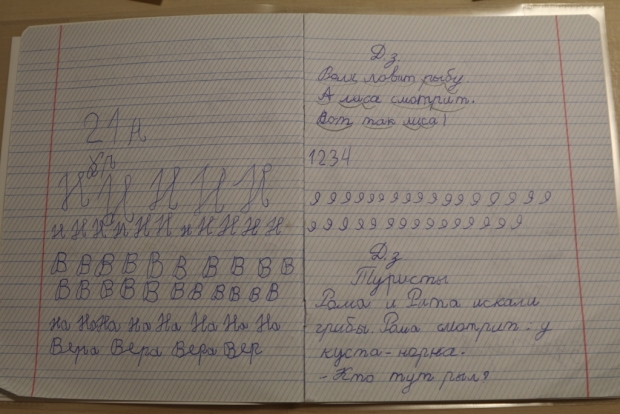 21 н
Н Н Н Н Н
н Н Н н Н Н н Н Н Н Н
В В В В В В В В В В
В В В В В В В В В В В
На На На На На На На На
Вера Вера Вера Вер
Дз
Волк ловит рыбу
А лиса смотрит.
Вот так лиса!
1234
Дз
Туристы
Рома и Рита искали
грибы. Рома смотрит: у
куста - норка.
- Кто тут рыл?